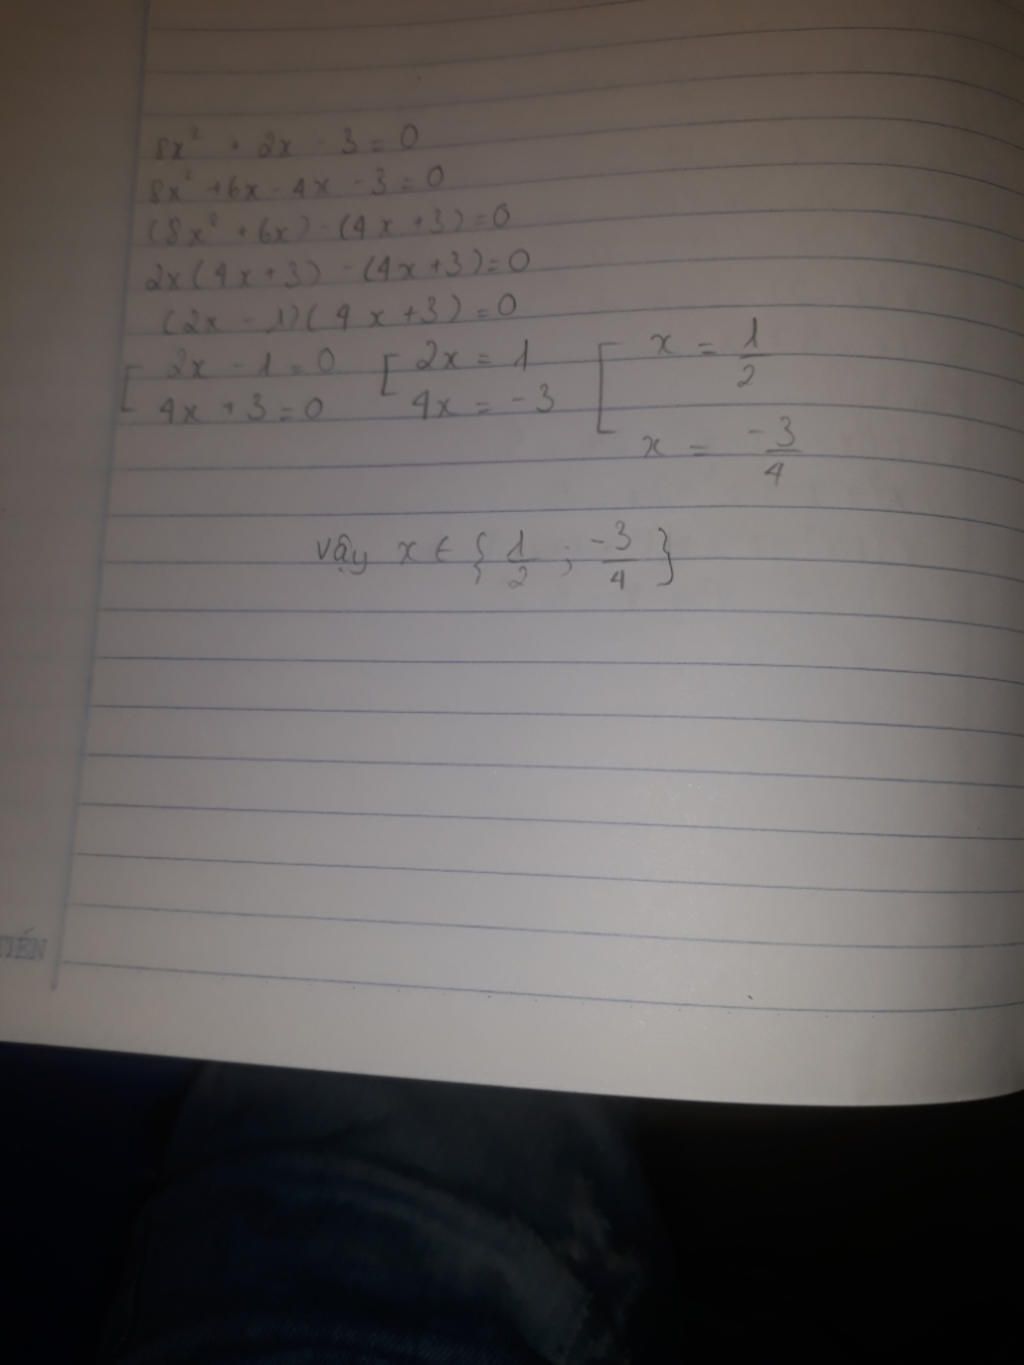 8x² + 2x - 3 = 0
8x² + 6x - 4x - 3 = 0
(8x² + 6x) - (4x + 3) = 0
2x(4x + 3) - (4x + 3) = 0
(2x - 1)(4x + 3) = 0
[ 2x - 1 = 0 [ 2x = 1 [ x = 1/2
4x + 3 = 0 4x = -3 x = -3/4
Vậy x ∈ { 1/2 ; -3/4 }
TIẾN